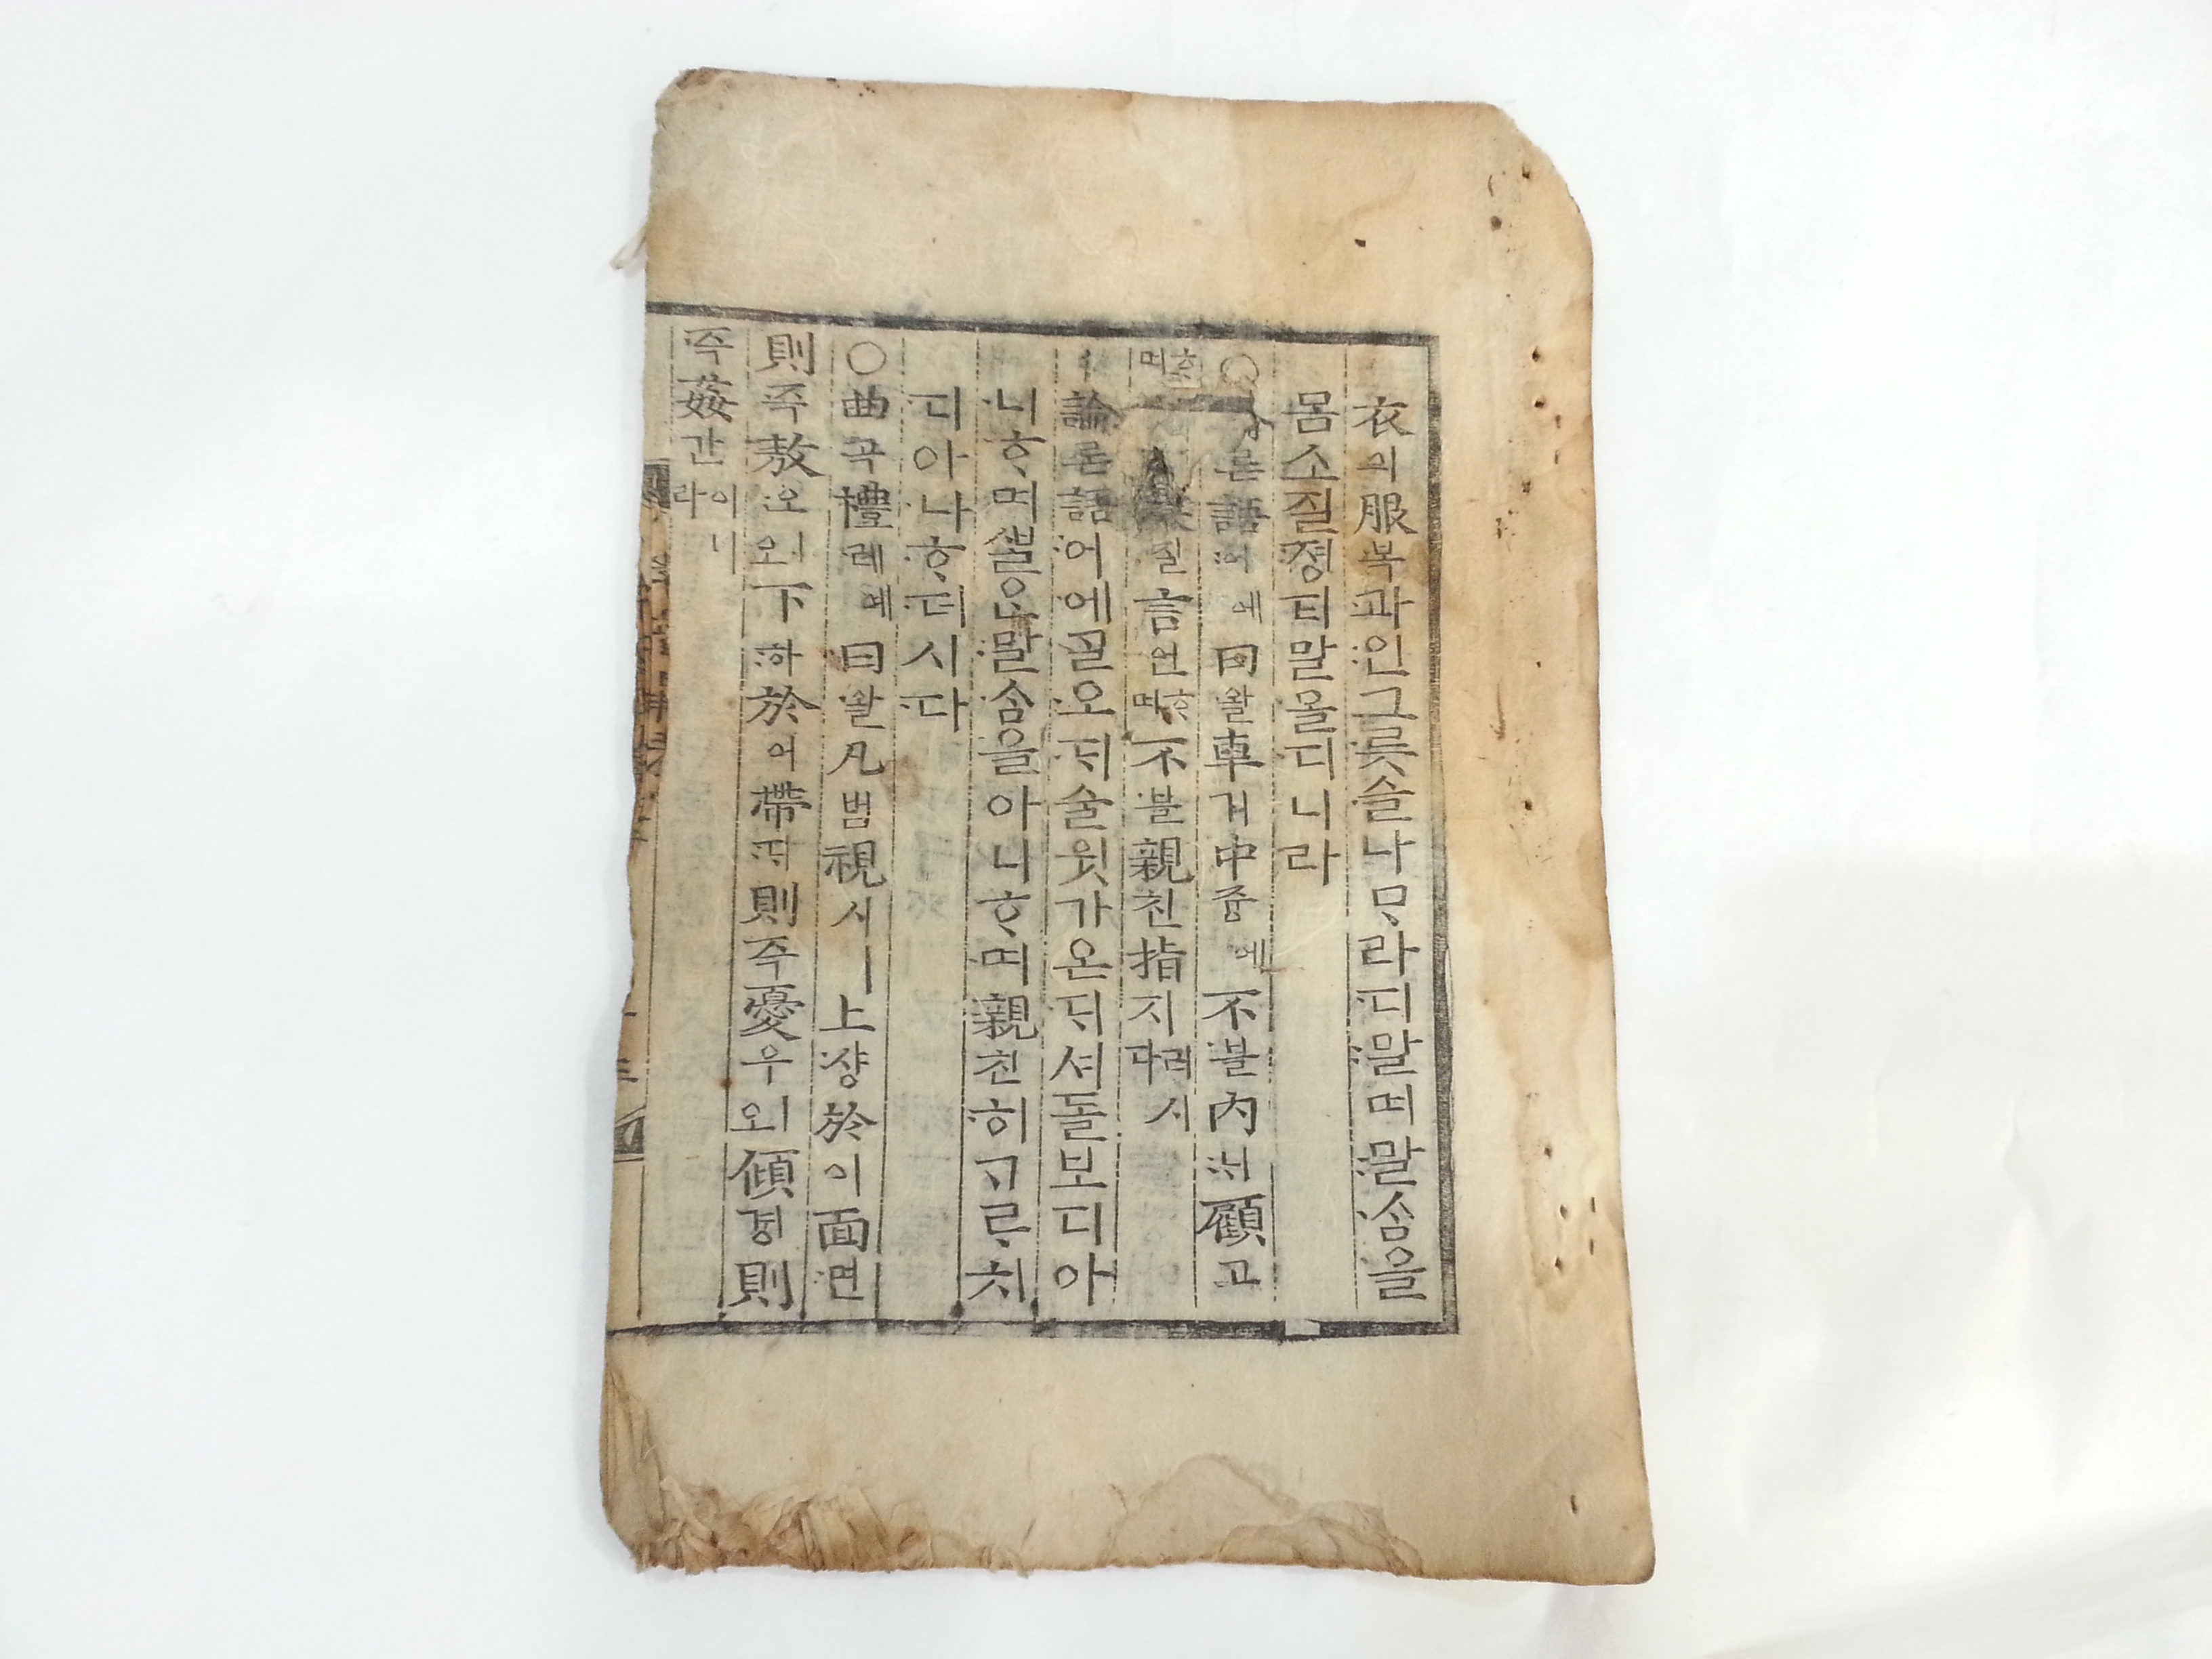 衣의服복과인그릇슬나ᄆᆞ라디말며말ᄉᆞᆷ을
몸소질졍티말올디니라
○론語어에曰왈車거中듕에不블內ᄂᆡ顧고
ᄒᆞ며질言언ᄒᆞ며不블親친指지러시다
論론語어에ᄀᆞᆯ오ᄃᆡ술윗가온ᄃᆡ셔돌보디아
니ᄒᆞ며ᄲᆞᆯ리말ᄉᆞᆷ을아니ᄒᆞ며親친히ᄀᆞᄅᆞ치
디아니ᄒᆞ더시다
○曲곡禮례예曰왈凡범視시ㅣ上샹於어面면
則즉敖오오ㅣ下하於어帶ᄃᆡ則즉憂우오ㅣ傾경則
즉姦간이니라